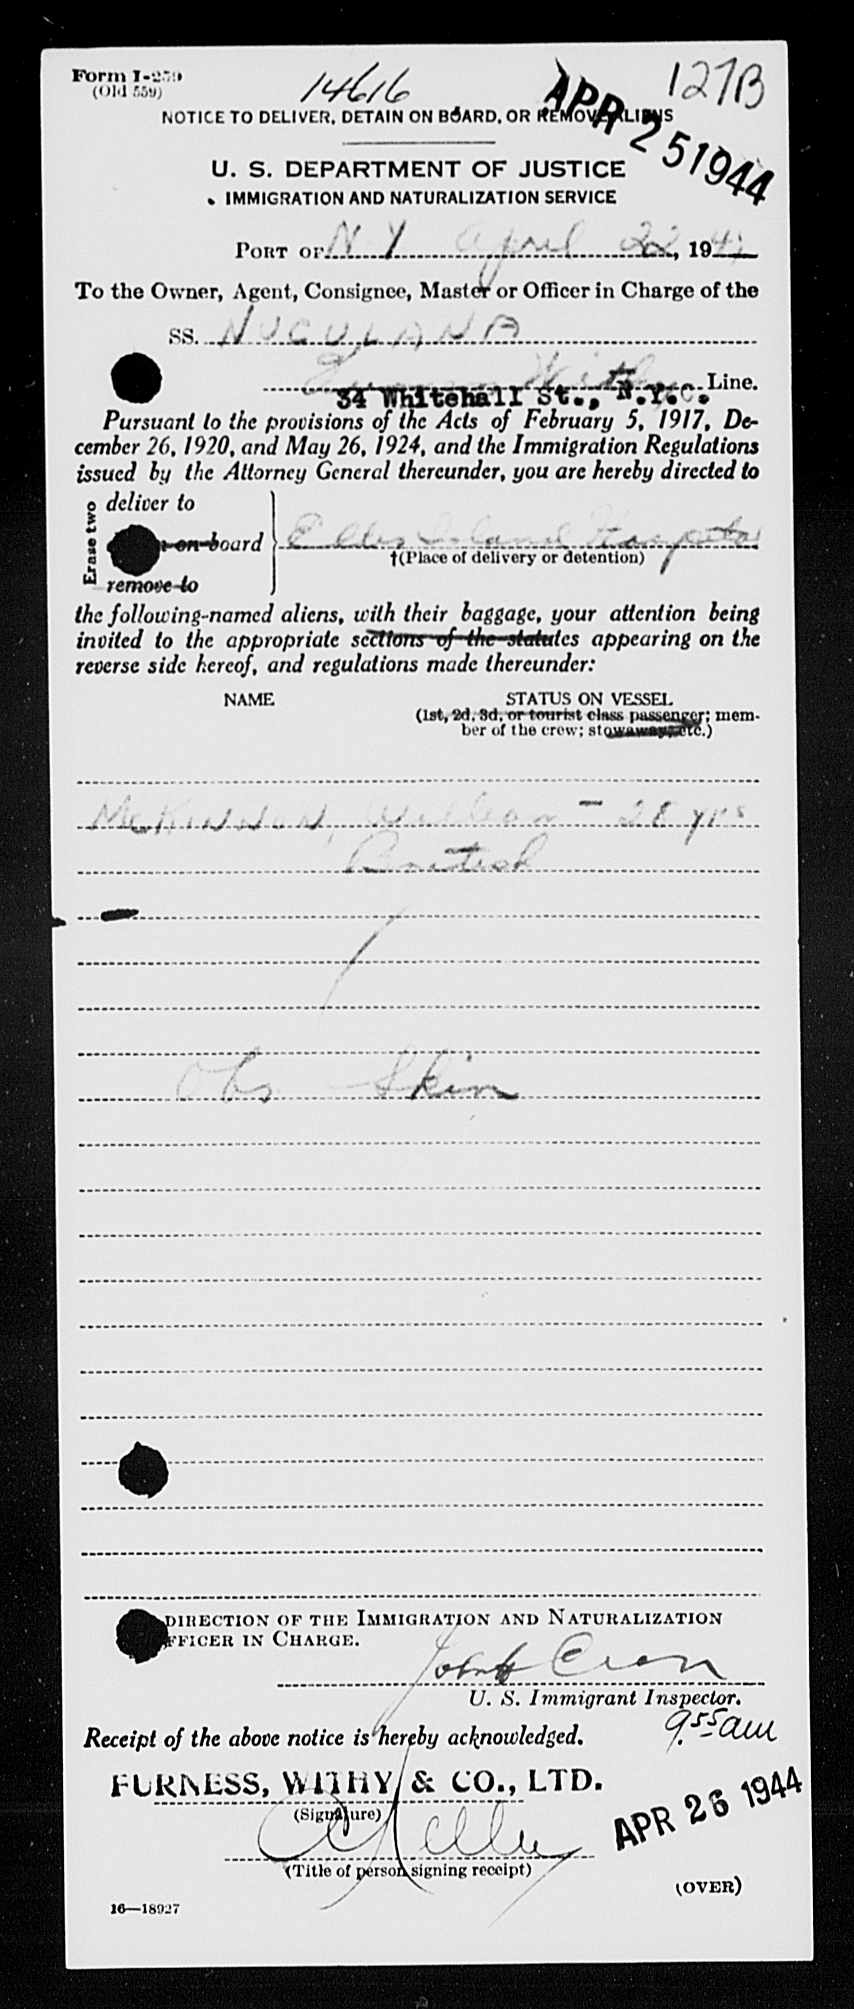 Form I-259
(Old 559)
14616
127B
APR 25 1944
NOTICE TO DELIVER, DETAIN ON BOARD, OR REMOVE ALIENS
U. S. DEPARTMENT OF JUSTICE
IMMIGRATION AND NATURALIZATION SERVICE
PORT OF N Y April 22, 194
To the Owner, Agent, Consignee, Master or Officer in Charge of the
SS. NUCULANA
Furness Withy Line.
34 Whitehall St., N.Y.C.
Pursuant to the provisions of the Acts of February 5, 1917, De-
cember 26, 1920, and May 26, 1924, and the Immigration Regulations
issued by the Attorney General thereunder, you are hereby directed to
Erase two
deliver to
on board
remove to
Ellis Island Hospital
†(Place of delivery or detention)
the following-named aliens, with their baggage, your attention being
invited to the appropriate sections of the statutes appearing on the
reverse side hereof, and regulations made thereunder:
NAME STATUS ON VESSEL
(1st, 2d, 3d, or tourist class passenger; mem-
ber of the crew; stowaway, etc.)
McKINNON, William - 28 yrs
British
Obs Skin
DIRECTION OF THE IMMIGRATION AND NATURALIZATION
OFFICER IN CHARGE.
John Cron
U. S. Immigrant Inspector.
Receipt of the above notice is hereby acknowledged.
9.55 am
FURNESS, WITHY & CO., LTD.
(Signature)
APR 26 1944
(Title of person signing receipt)
(OVER)
16—18927